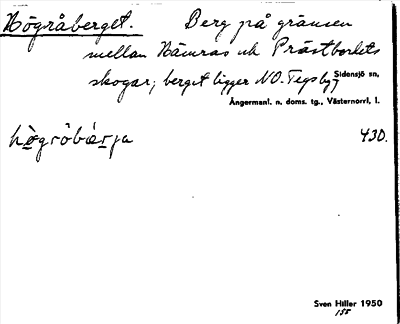 Högråberget. Berg på gränsen
mellan Hämras och Prästbordets
skogar; berget ligger NO. Tegsby
Sidensjö sn,
Ångermanl. n. doms. tg., Västernorrl. l.
hògròbǽrja 430.
Sven Hiller 1950
155